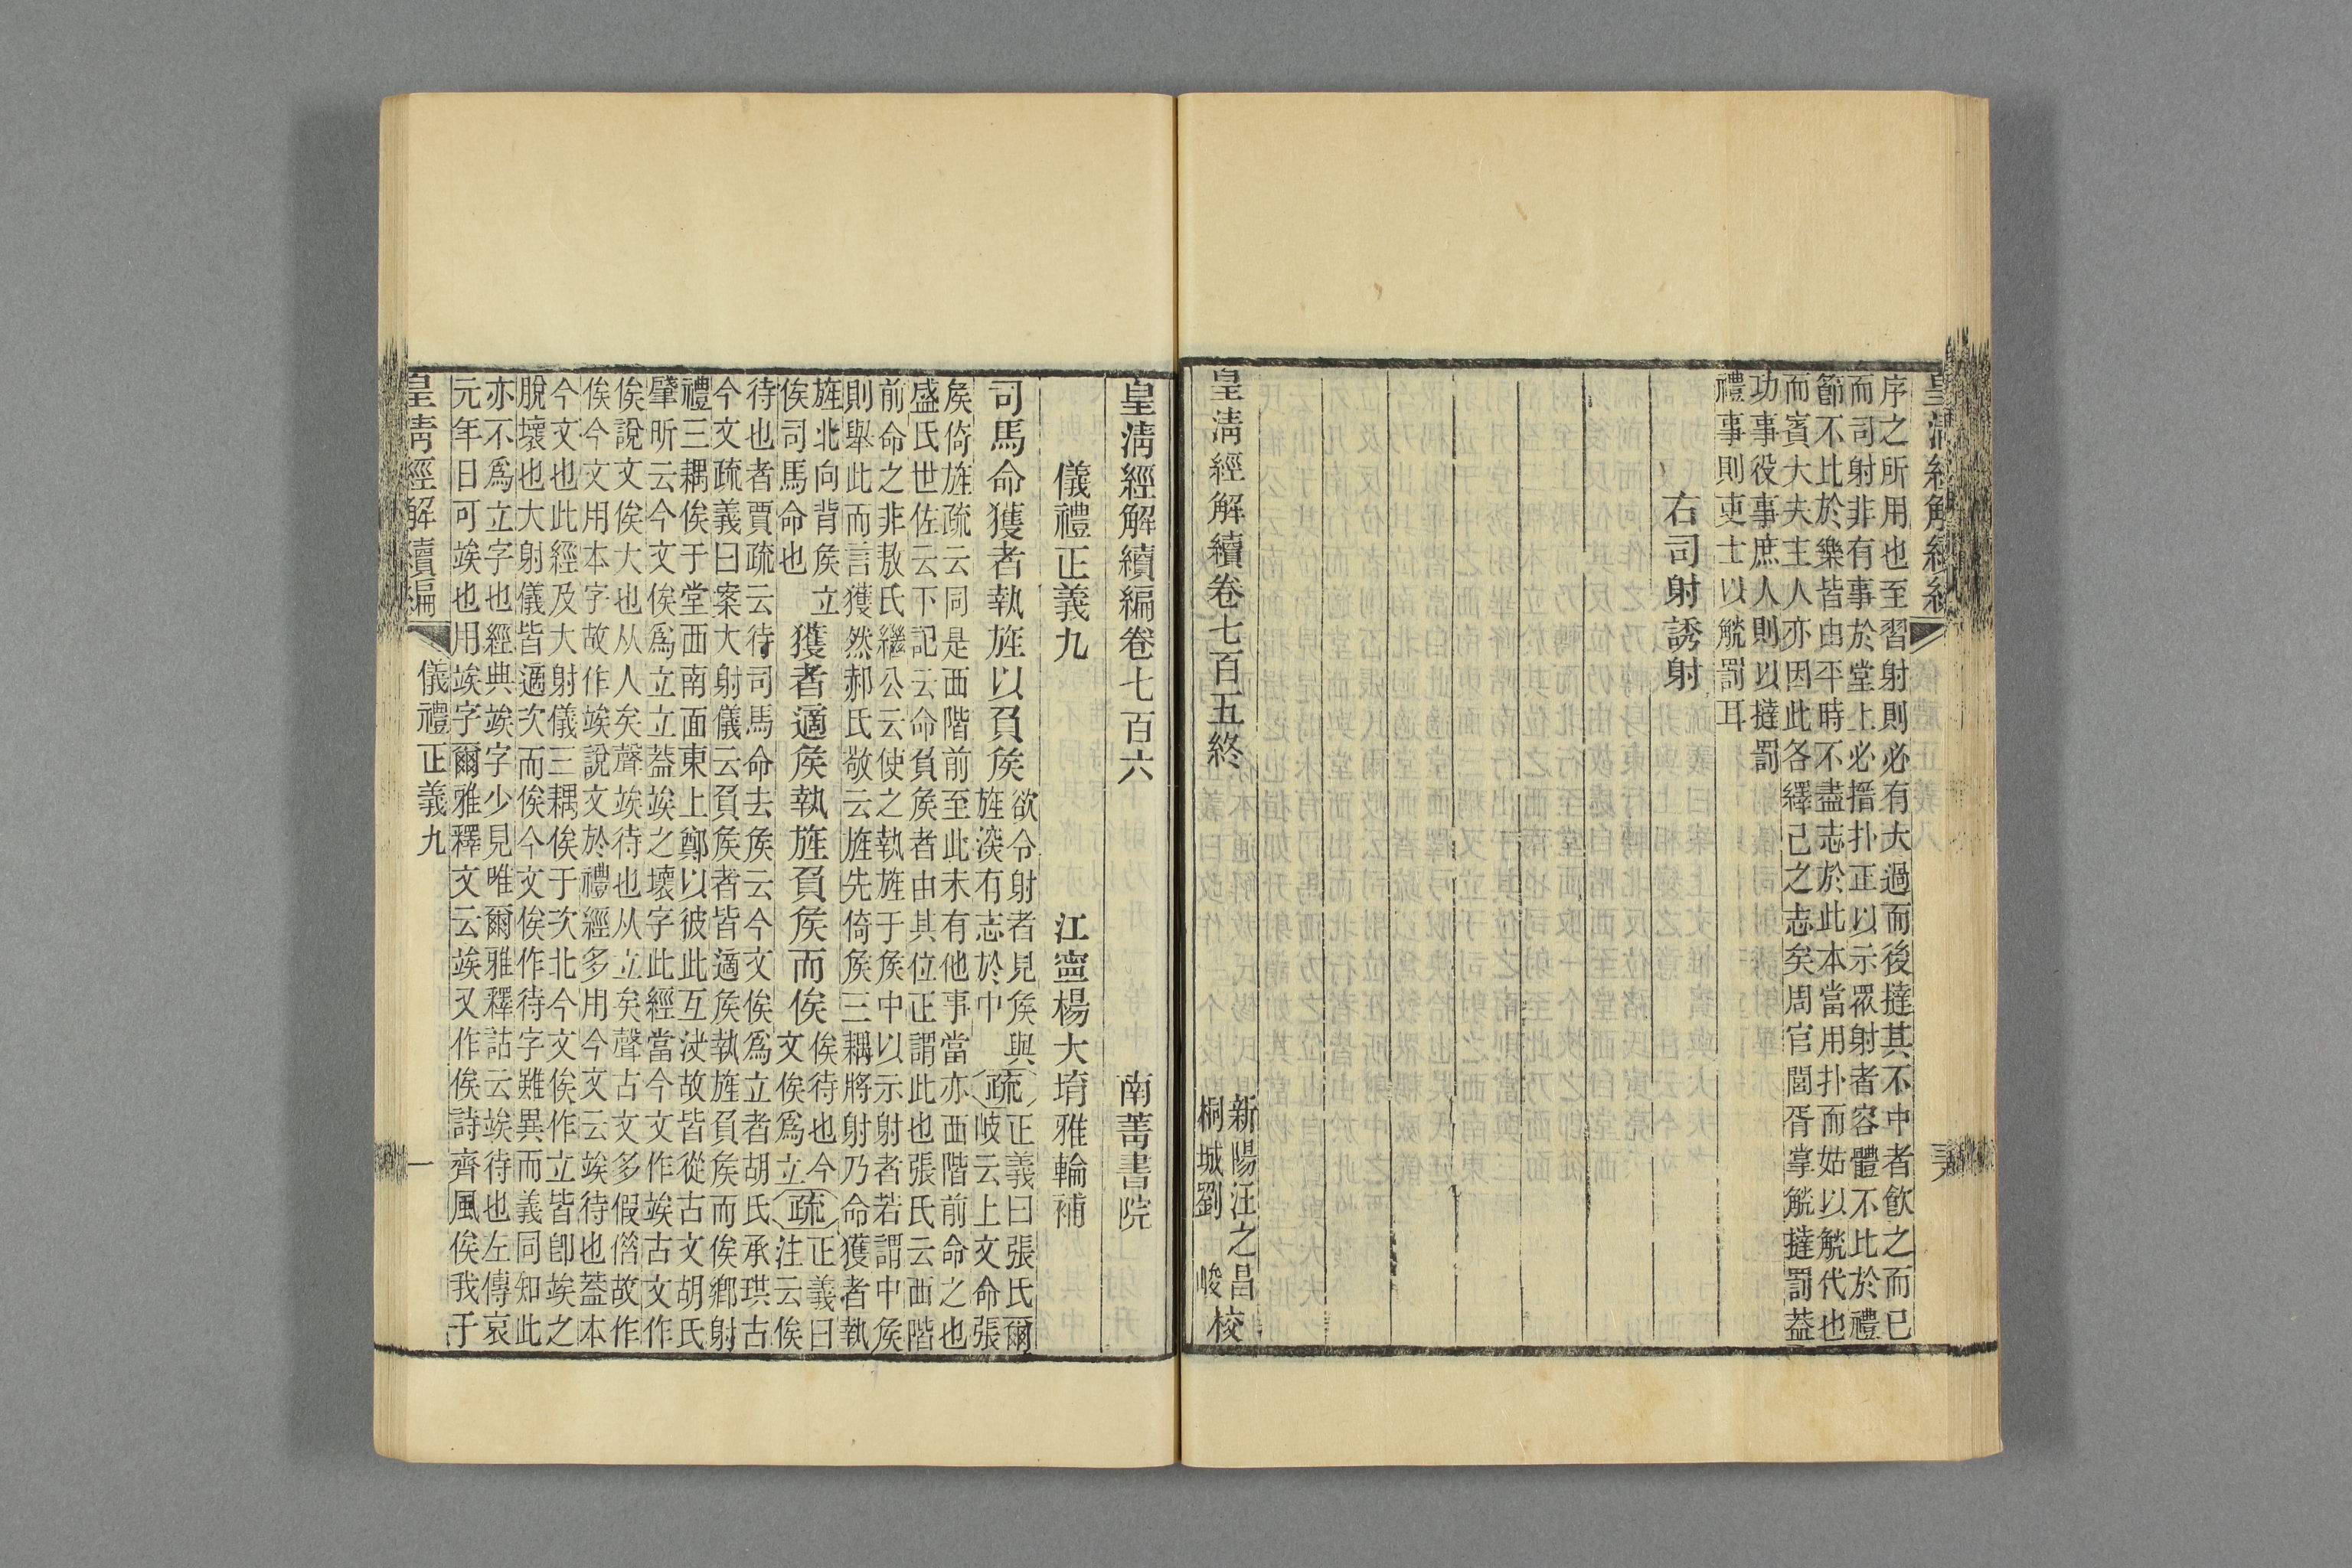 序之所用也至習射則必有大過而後撻其不中者飮之而已
而司射非有事於堂上必搢扑正以示眾射者容體不比於禮
節不比於樂皆由平時不盡志於此本當用扑而姑以觵代也
而賓大夫主人亦因此各繹己之志矣周官閭胥掌觵撻罰葢
功事役事庶人則以撻罰
禮事則吏士以觵罰耳
右司射誘射
皇淸經解續卷七百五終
新陽汪之昌
桐城劉 峻
校
皇淸經解續編卷七百六
南菁書院
儀禮正義九
江寍楊大堉雅輪補
司馬命獲者執旌以負矦
欲令射者見矦與
旌深有志於中
疏
正義曰張氏爾
岐云上文命張
矦倚旌疏云同是西階前至此未有他事當亦西階前命之也
盛氏世佐云下記云命負矦者由其位正謂此也張氏云西階
前命之非敖氏繼公云使之執旌于矦中以示射者若謂中矦
則舉此而言獲然郝氏敬云旌先倚矦三耦將射乃命獲者執
旌北向背矦立
俟司馬命也
獲者適矦執旌負矦而俟
俟待也今
文俟爲立
疏
正義曰
注云俟
待也者賈疏云待司馬命去矦云今文俟爲立者胡氏承珙古
今文疏義曰案大射儀云負矦者皆適矦執旌負矦而俟鄉射
禮三耦俟于堂西南面東上鄭以彼此互決故皆從古文胡氏
肇昕云今文俟爲立立葢竢之壞字此經當今文作竢古文作
俟說文俟大也从人矣聲竢待也从立矣聲古文多假僭故作
俟今文用本字故作竢說文於禮經多用今文云竢待也葢本
今文也此經及大射儀三耦俟于次北今文俟作立皆卽竢之
脫壞也大射儀皆適次而俟今文俟作待字雖異而義同知此
亦不爲立字也經典竢字少見唯爾雅釋詁云竢待也左傳哀
元年日可竢也用竢字爾雅釋文云竢又作俟詩齊風俟我于
皇淸經解續編
儀禮正義九
一